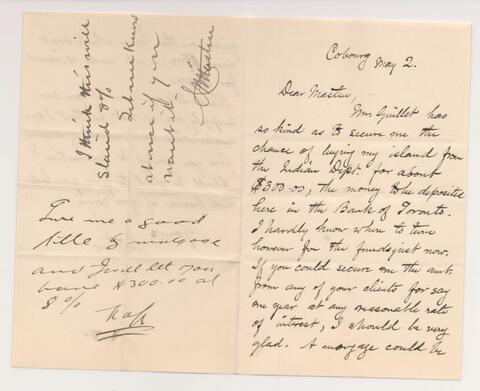 Cobourg May 2.
Dear Master,
Mr. Guillet has
so kind as to secure me the
chance of buying my island from
the Indian Dept. for about
$300.00, the money to be deposited
here in the Bank of Toronto.
I hardly know where to turn
however for the funds just now.
If you could secure me the amt.
from any of your clients for say
one year at any reasonable rate
of interest, I should be very
glad. A morgage could be
I think this will
stand 8%
Let me know
at once if you
want it.
Give me a good
title by mortgage
and I will let you
have $300.00 at
8%